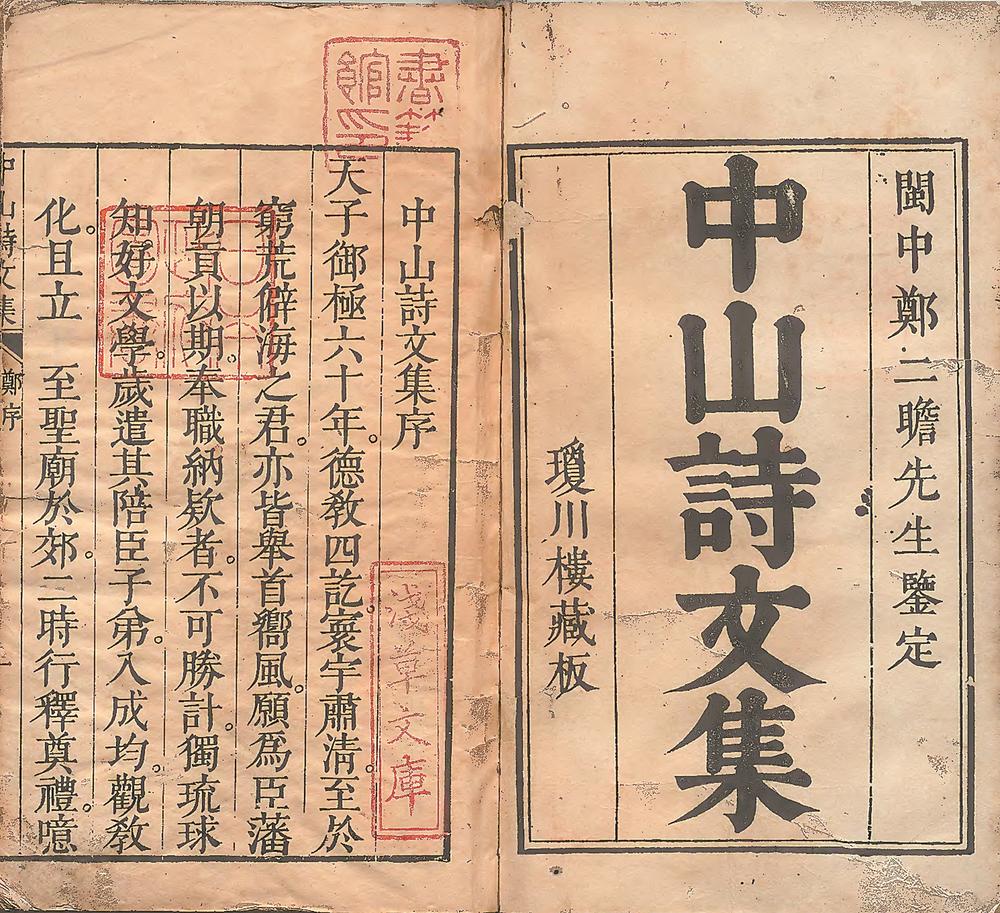 閩中鄭二瞻先生鑒定
中山詩文集
瓊川樓藏板
中山詩文集序
天子御極六十年。德教四訖。寰宇肅淸。至於
窮荒僻海之君。亦皆舉首嚮風。願為臣藩
朝貢以期。奉職納欵者。不可勝計。獨琉球
知好文學。歲遣其陪臣子弟。入成均。觀教
化。且立 至聖廟於郊。二時行釋奠禮。噫
中山詩文集 鄭序
書籍館印
淺草文庫